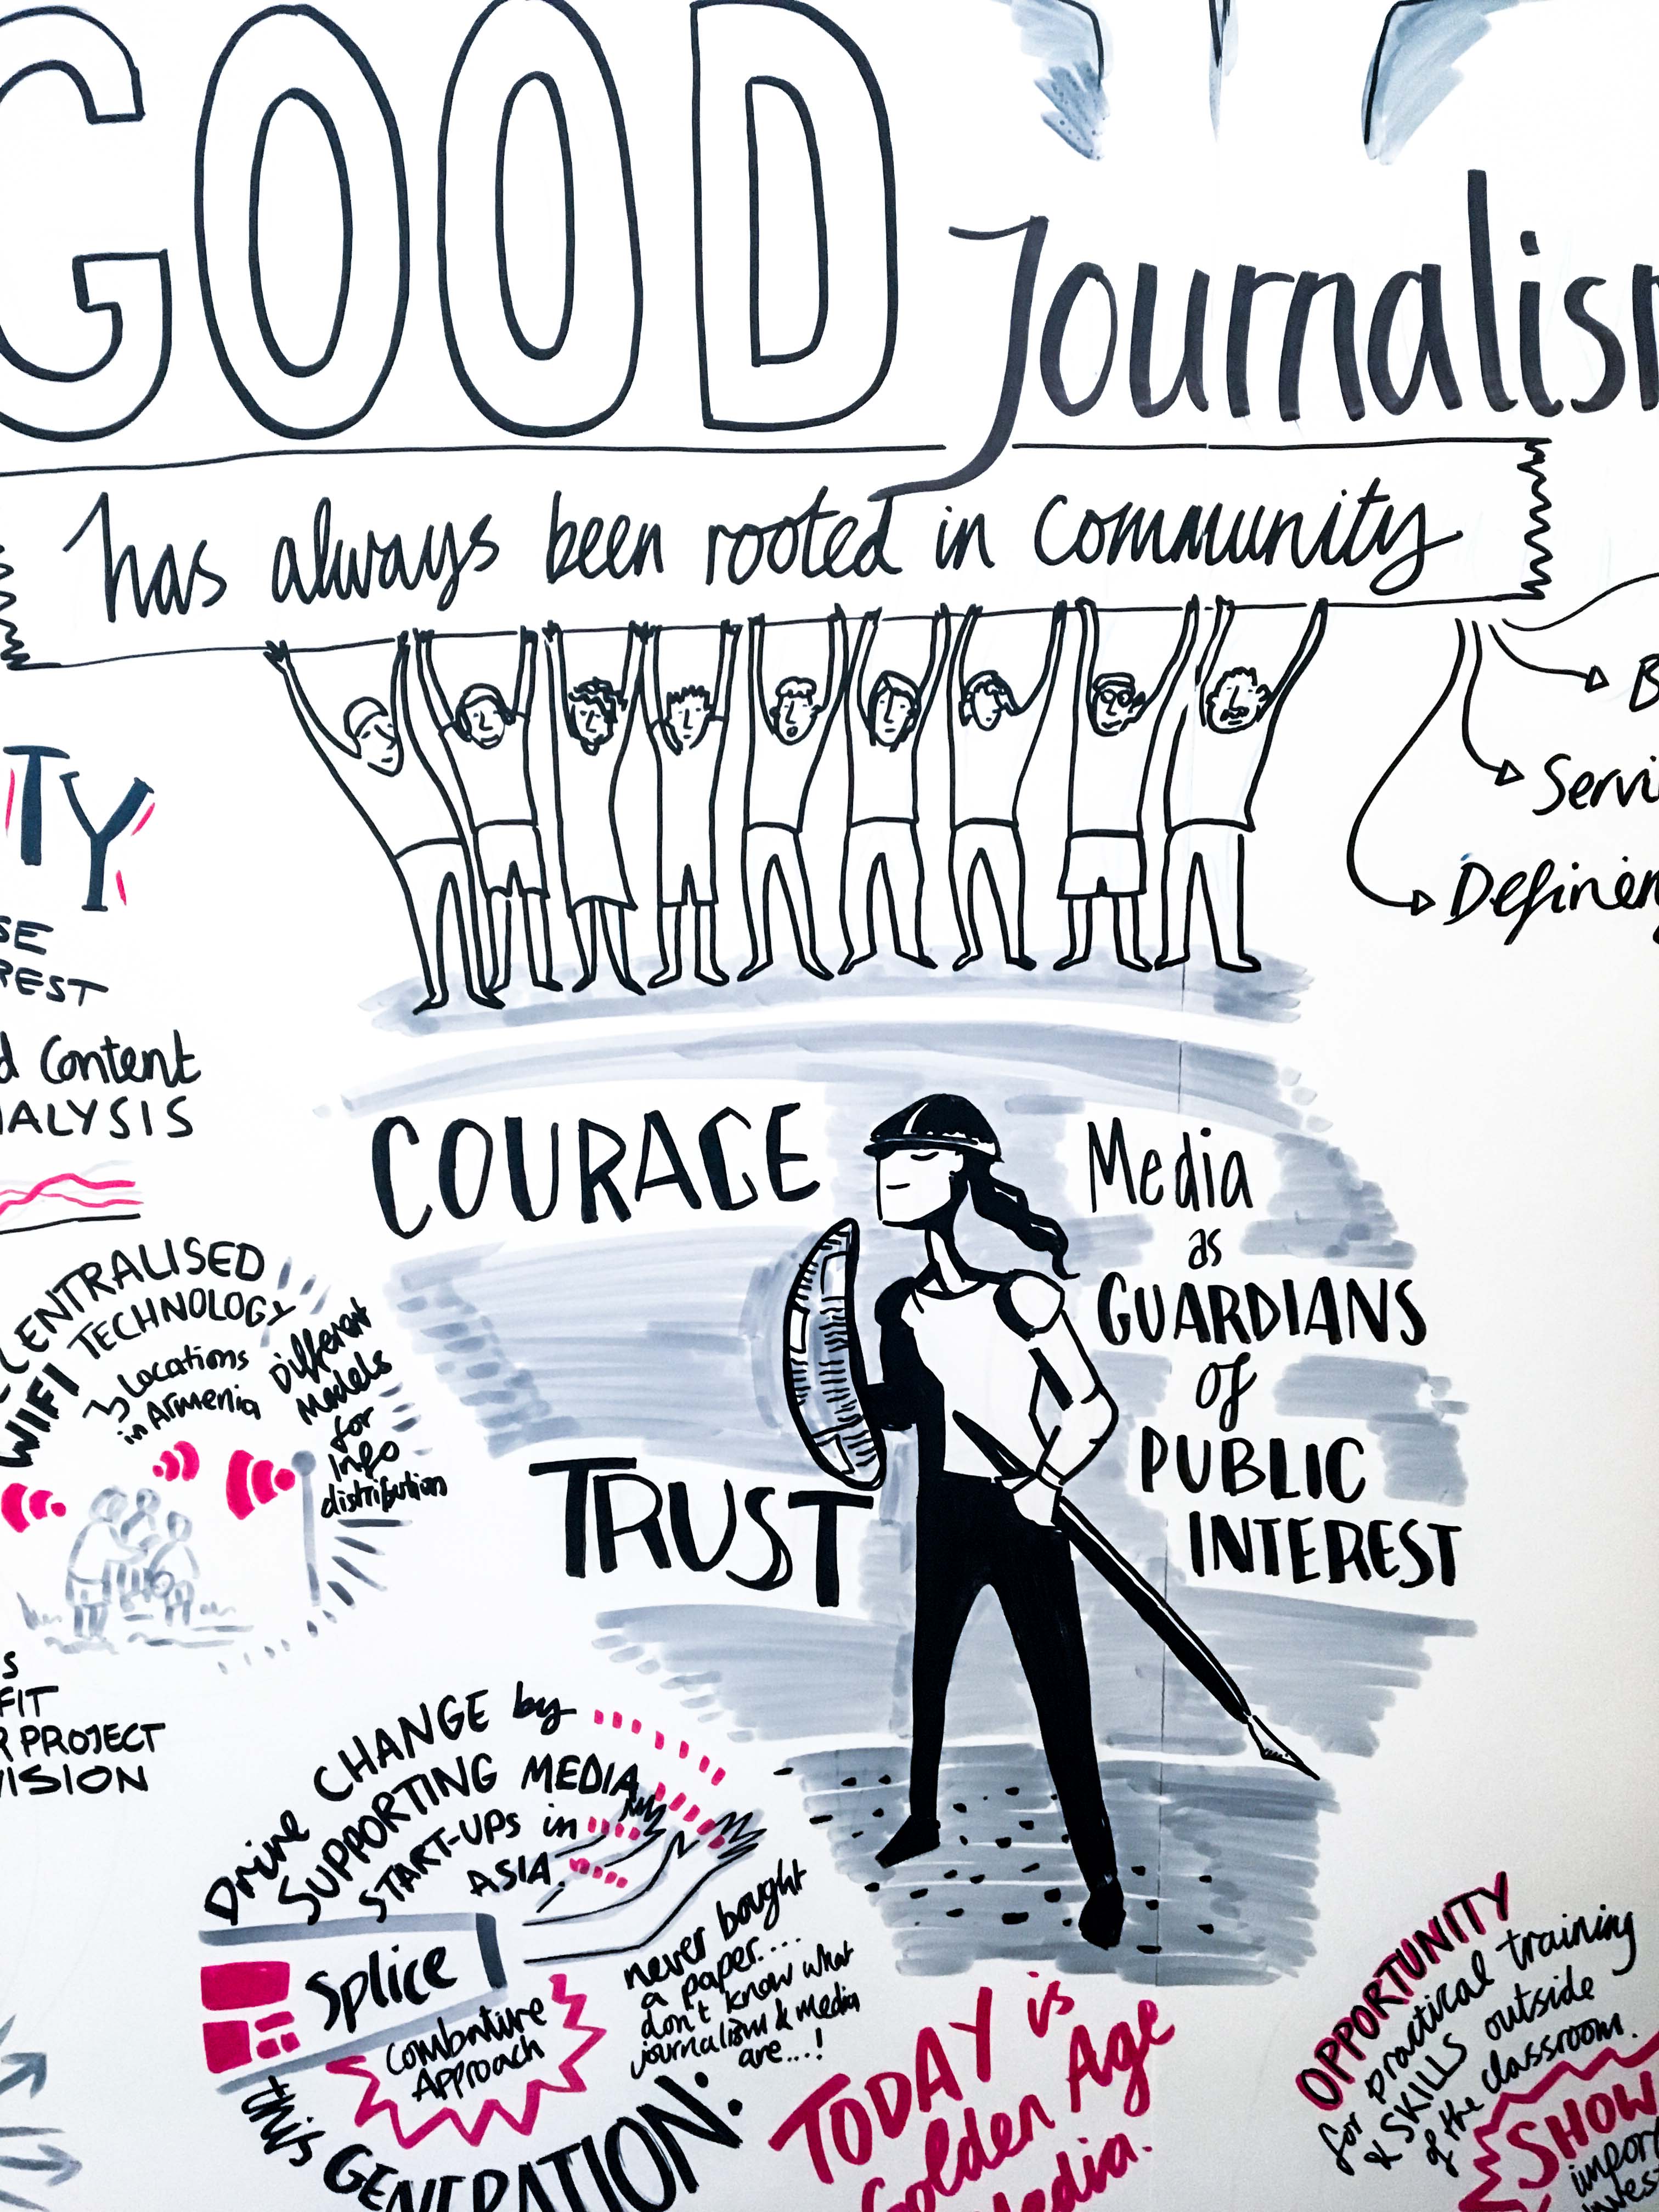 GOOD Journalism
has always been rooted in community
B
Servi
Definen
TY
SE
REST
d Content
ALYSIS
COURAGE
Media
as
GUARDIANS
of
PUBLIC
INTEREST
TRUST
CENTRALISED
WIFI TECHNOLOGY
3 Locations
in Armenia
Different
Models
for
Info
distribution
S
FIT
R PROJECT
VISION
Drive CHANGE by
SUPPORTING MEDIA
START-UPs in
ASIA.
Splice
Combative
Approach
never bought
a paper....
don't know what
journalism & media
are...!
this GENERATION:
TODAY is
Golden Age
Media.
OPPORTUNITY
for practical training
& SKILLS outside
of the classroom.
SHOW